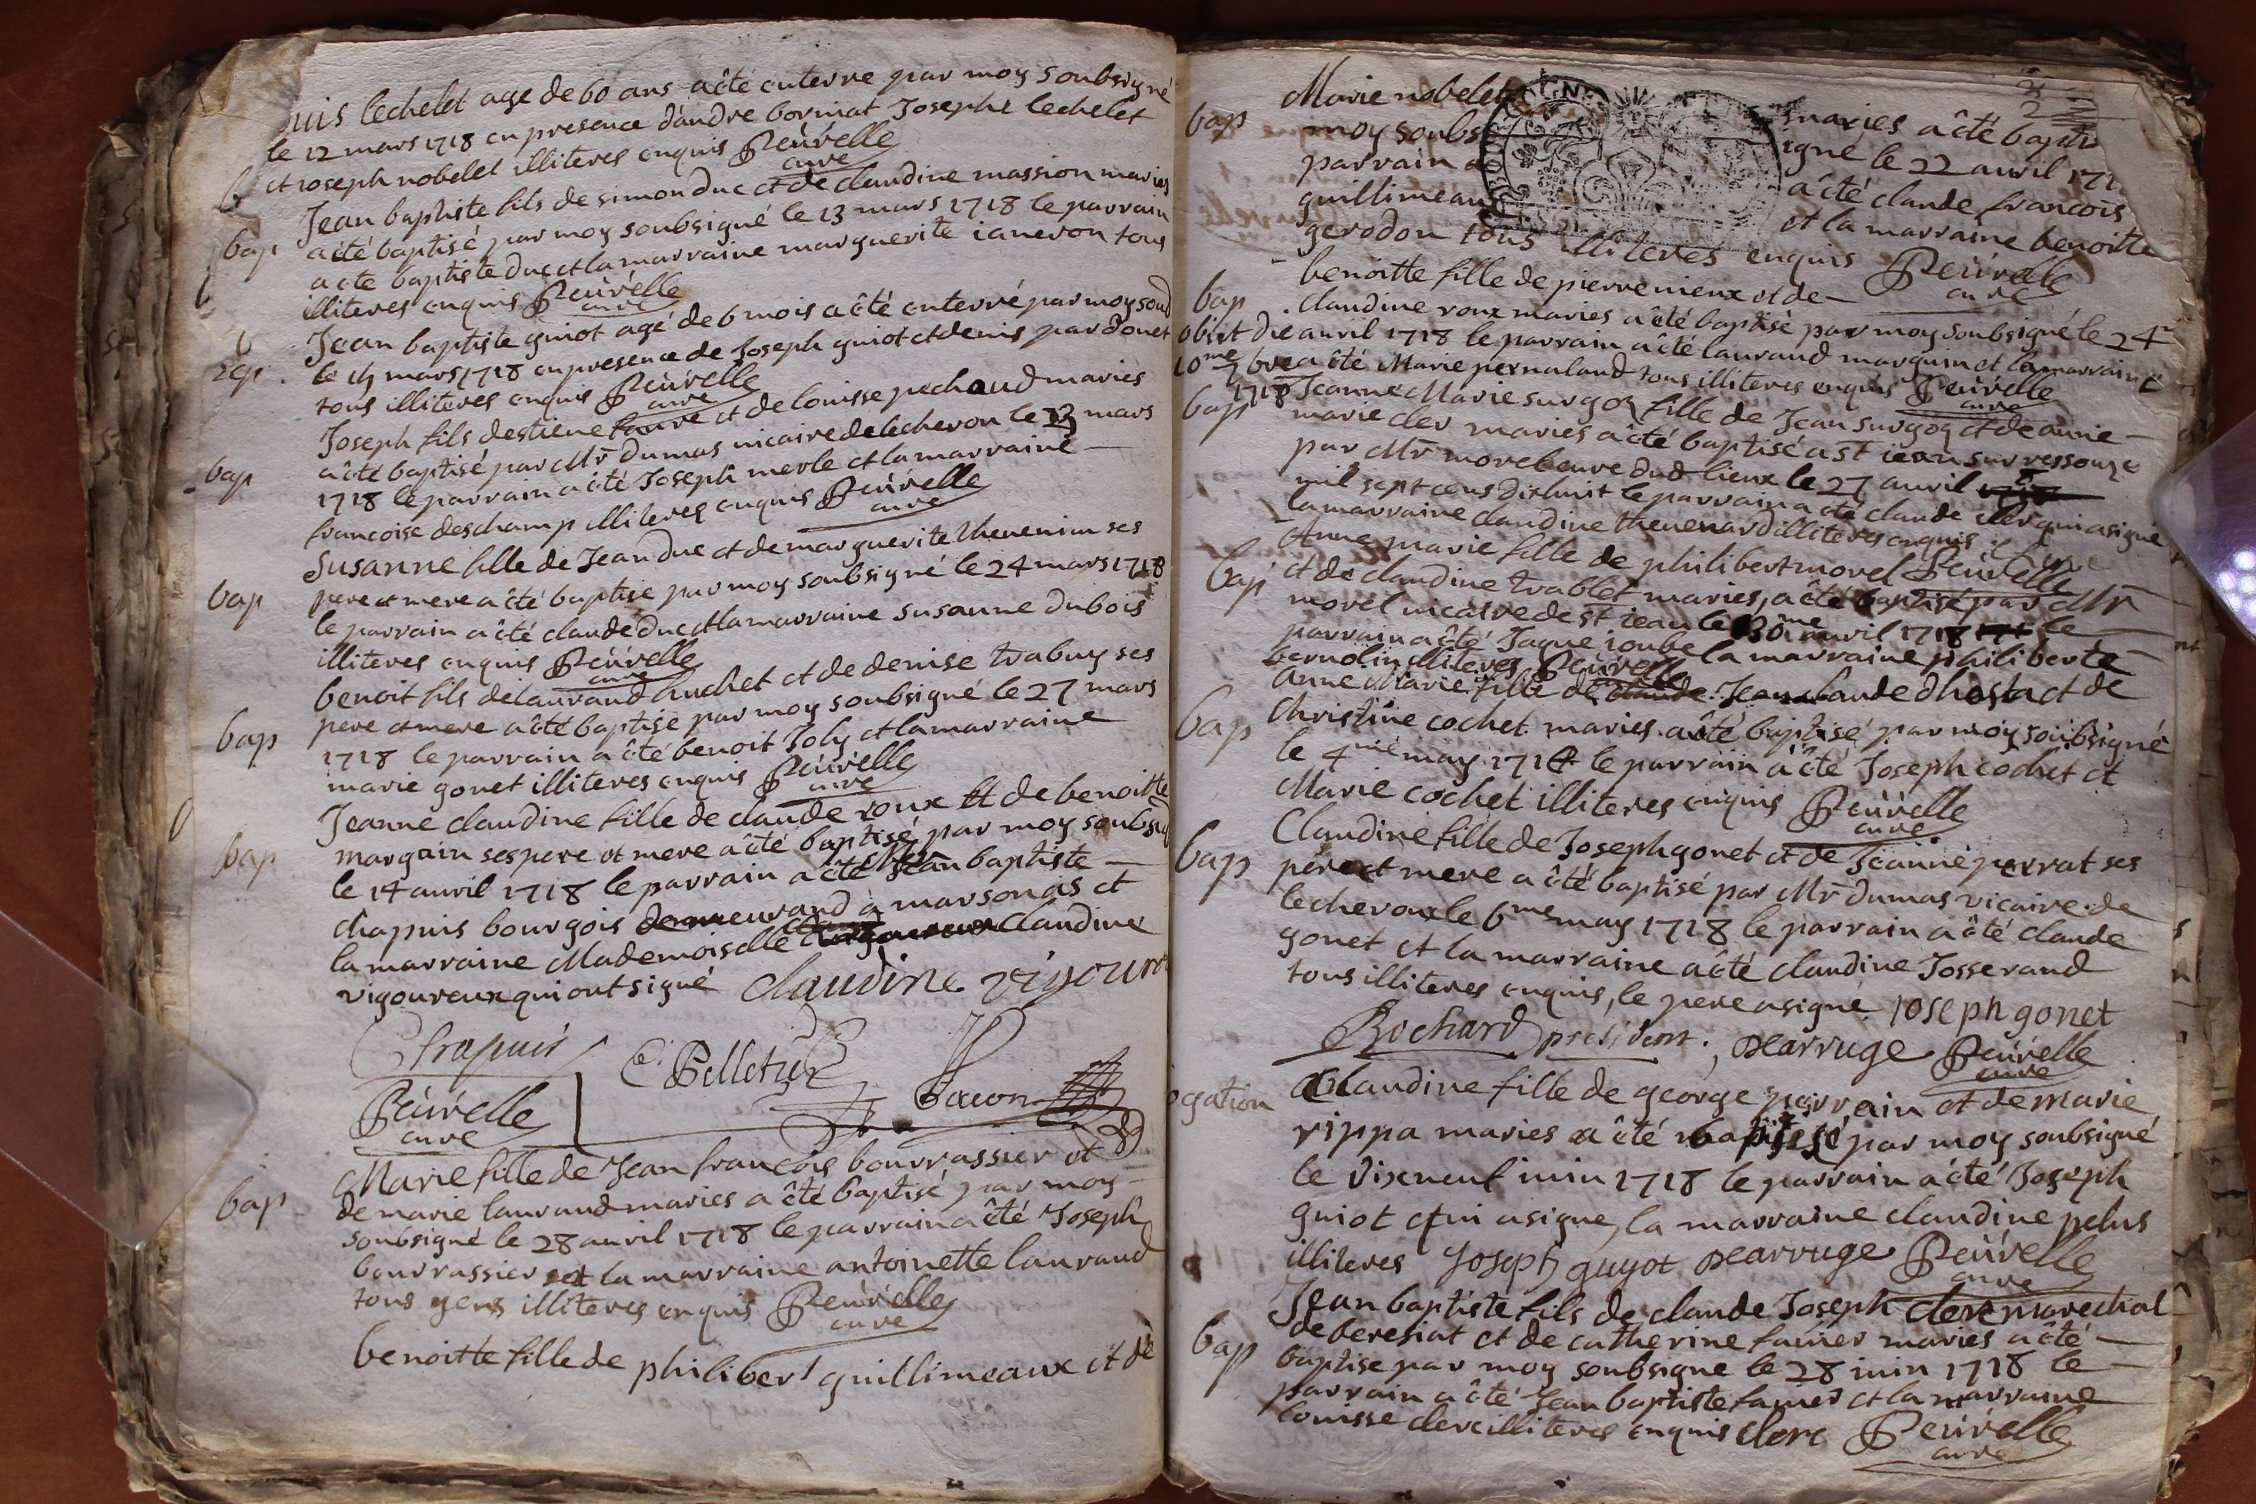 ouis lechelet age de 60 ans a été enterre par moy soubsigné
le 12 mars 1718 en presence dandre borniat Joseph lechelet
et ioseph nobelet illiteres enquis Peuvelle
cure
bap
Jean baptiste fils de simon duc et de claudine massion maries
a été baptisé par moy soubsigné le 13 mars 1718 le parrain
a été baptiste duc et la marraine marguerite ianeron tous
illiteres enquis Peuvelle
cure
Jean baptiste guiot agé de 6 mois a été enterré par moy soub
le mars 1718 en presence de Joseph guiot et denis pardonet
tous illiteres enquis Peuvelle
cure
bap
Joseph fils destiene faure et de louisse pechaud maries
a été baptisé par Mr dumas vicaire de lecheron le 23 mars
1718 le parrain a été Joseph merle et la marraine
francoise deschamp illiteres enquis Peuvelle
cure
bap
Susanne fille de Jean duc et de marguerite thevenin ses
pere et mere a été baptise par moy soubsigné le 24 mars 1718
le parrain a été claude duc et la marraine susanne dubois
illiteres enquis Peuvelle
cure
bap
benoit fils de laurand huchet et de denise trabuy ses
pere et mere a été baptise par moy soubsigné le 27 mars
1718 le parrain a été benoit Joly et la marraine
marie gonet illiteres enquis Peuvelle
cure
bap
Jeanne claudine fille de claude roux et de benoitte
margain ses pere et mere a été baptisé par moy soubsig
le 14 avril 1718 le parrain a été Mr Jean baptiste
chapuis bourgois demeurand à marsonas et
la marraine Mademoiselle claudine
vigoureux qui ont signé claudine vigoure
Chapuis C. Pelletier
Peuvelle
cure
bap
Marie fille de Jean francois bourrassier et
de marie laurand maries a été baptisé par moy
soubsigné le 28 avril 1718 le parrain a été Joseph
bourrassier et la marraine antoinette laurand
tous gens illiteres enquis Peuvelle
cure
benoitte fille de philibert guillimeaux et de
bap
Marie nobelet maries a été bapti
moy soubs igné le 22 avril 171
parrain a a été claude francois
guillimeaux et la marraine benoitte
gerodon tous illiteres enquis Peuvelle
cure
bap
benoitte fille de pierre nieux et de
claudine roux maries a été baptisé par moy soubsigné le 24
obiit die avril 1718 le parrain a été laurand marguin et la marraine
10me 7bre a été Marie pernaland tous illiteres enquis Peuvelle
1718 cure
bap
Jeanne Marie surgoz fille de Jean surgoz et de anne
marie cler maries a été baptisé a st iean sur ressouze
par Mr morel cure dud lieux le 27 avril
mil sept cens dixhuit le parrain a été claude cler qui a signé
la marraine claudine thevenard illiteres enquis
bap
Anne marie fille de philibert morel Peuvelle
et de claudine trablet maries, a été baptisé par Mr
morel vicaire de st iean le 30me avril 1718 le
parrain a été Jaque ioube la marraine philiberte
bernolin illiteres Peuvelle
bap
anne Marie fille de Jean claude dhosta et de
christine cochet maries a été baptisé par moy soubsigné
le 4me may 1718 le parrain a été Joseph cochet et
Marie cochet illiteres enquis Peuvelle
cure
bap
Claudine fille de Joseph gonet et de Jeanne perrat ses
pere et mere a été baptisé par Mr dumas vicaire de
lecheroux le 6me may 1718 le parrain a été claude
gonet et la marraine a été claudine Josserand
tous illiteres enquis, le pere a signé ioseph gonet
Rochard president. Dearruge Peuvelle
cure
ogation
Claudine fille de george parrain et de marie
rippa maries a été baptisé par moy soubsigné
le dixneuf iuin 1718 le parrain a été Joseph
guiot qui a signe, la marraine claudine pelus
illiteres Joseph guyot Dearruge Peuvelle
cure
bap
Jean baptiste fils de claude Joseph clere marechal
de beresiat et de catherine famer maries a été
baptise par moy soubsigne le 28 iuin 1718 le
parrain a été Jean baptiste famer et la marraine
louisse clerc illiteres enquis clerc Peuvelle
cure